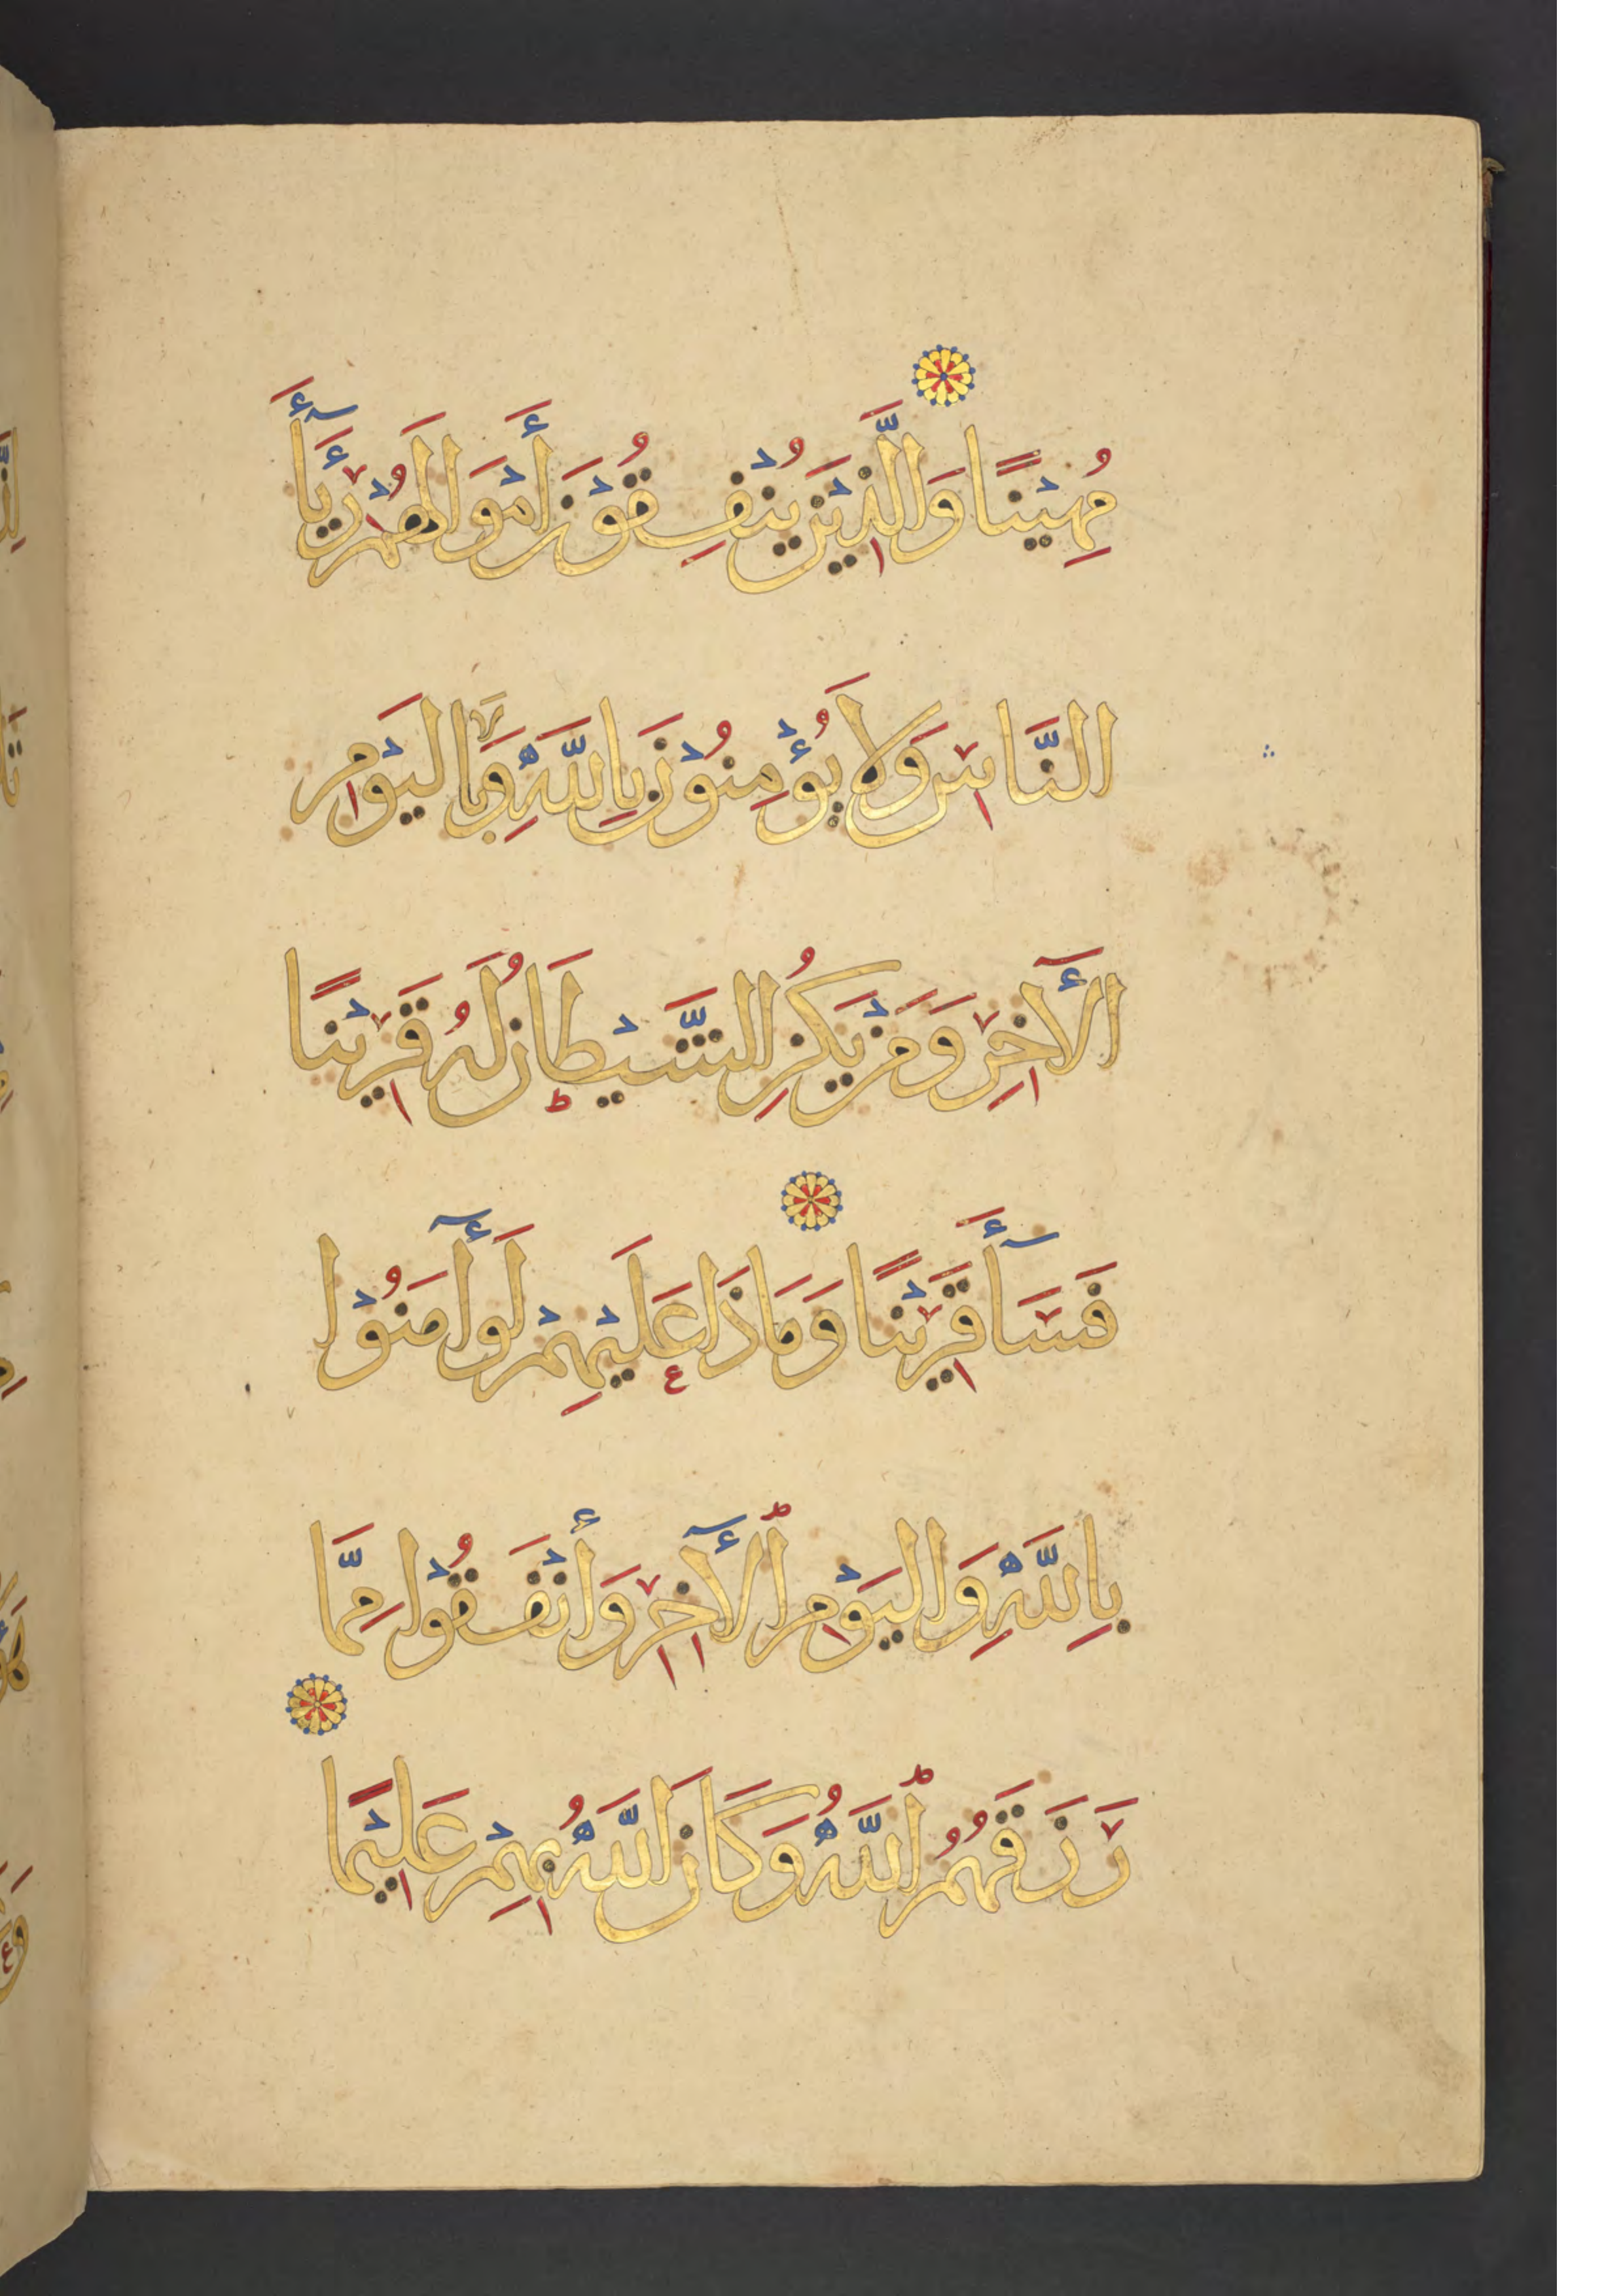 مُهِيْنًا وَالَّذِيْنَ يُنْفِقُوْنَ أَمْوَالَهُمْ رِئَآءَ
النَّاسِ وَلَا يُؤْمِنُوْنَ بِاللَّهِ وَلَا بِالْيَوْمِ
الْآخِرِ وَمَنْ يَكُنِ الشَّيْطَانُ لَهُ قَرِيْنًا
فَسَآءَ قَرِيْنًا وَمَاذَا عَلَيْهِمْ لَوْ آمَنُوْا
بِاللَّهِ وَالْيَوْمِ الْآخِرِ وَأَنْفَقُوْا مِمَّا
رَزَقَهُمُ اللَّهُ وَكَانَ اللَّهُ بِهِمْ عَلِيْمًا